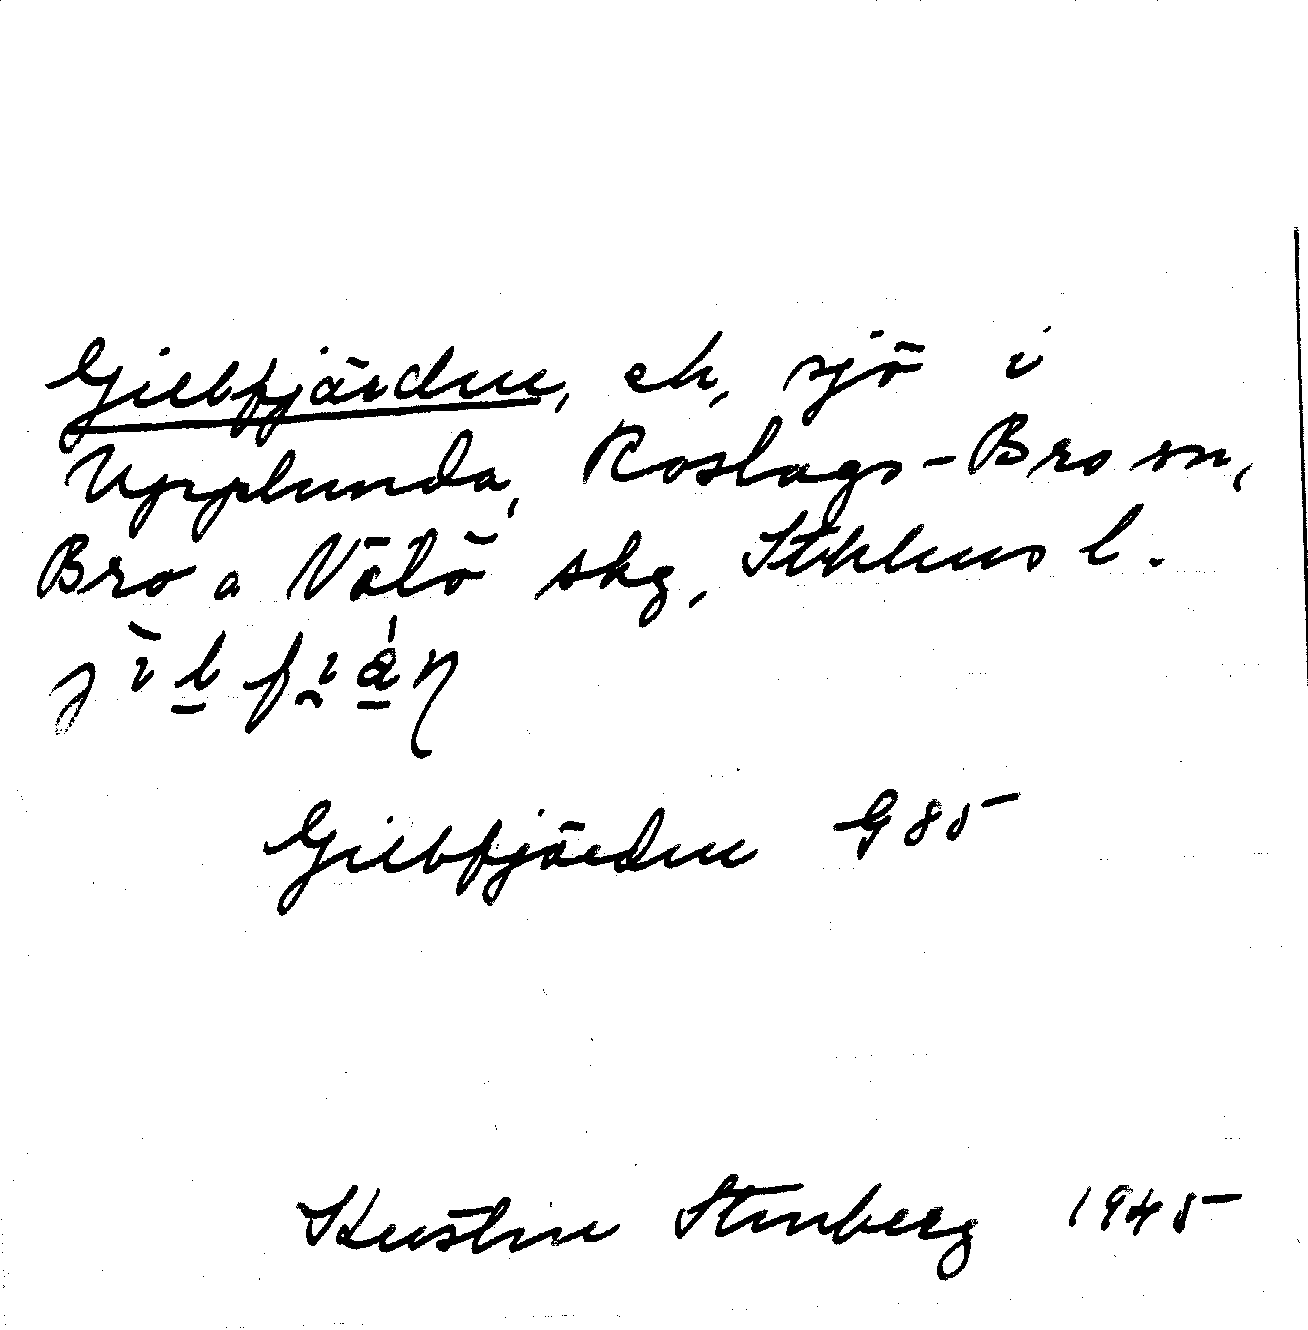 Gillfjärden, ek, sjö i
Upplanda, Roslags-Bro sn,
Bro o Vätö skg, Sthlms l.
Gillfjärden G85
Kerstin Stenberg 1945